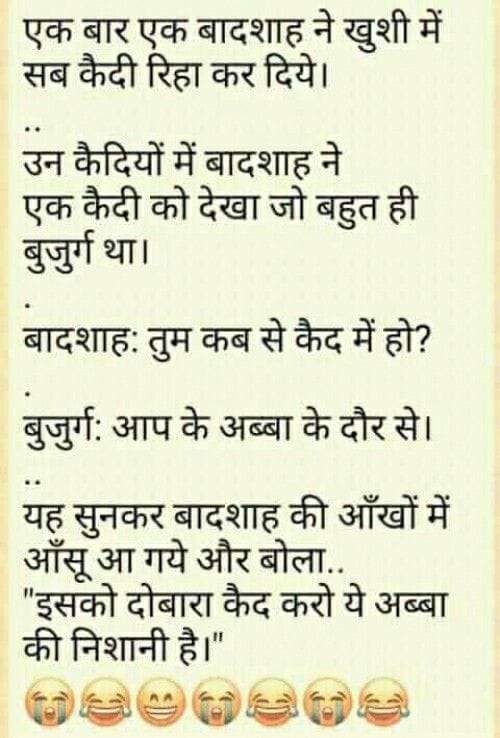 एक बार एक बादशाह ने खुशी में
सब कैदी रिहा कर दिये।
..
उन कैदियों में बादशाह ने
एक कैदी को देखा जो बहुत ही
बुजुर्ग था।
.
बादशाह: तुम कब से कैद में हो?
.
बुजुर्ग: आप के अब्बा के दौर से।
..
यह सुनकर बादशाह की आँखों में
आँसू आ गये और बोला..
"इसको दोबारा कैद करो ये अब्बा
की निशानी है।"
😭😂😁😭😂😭😂